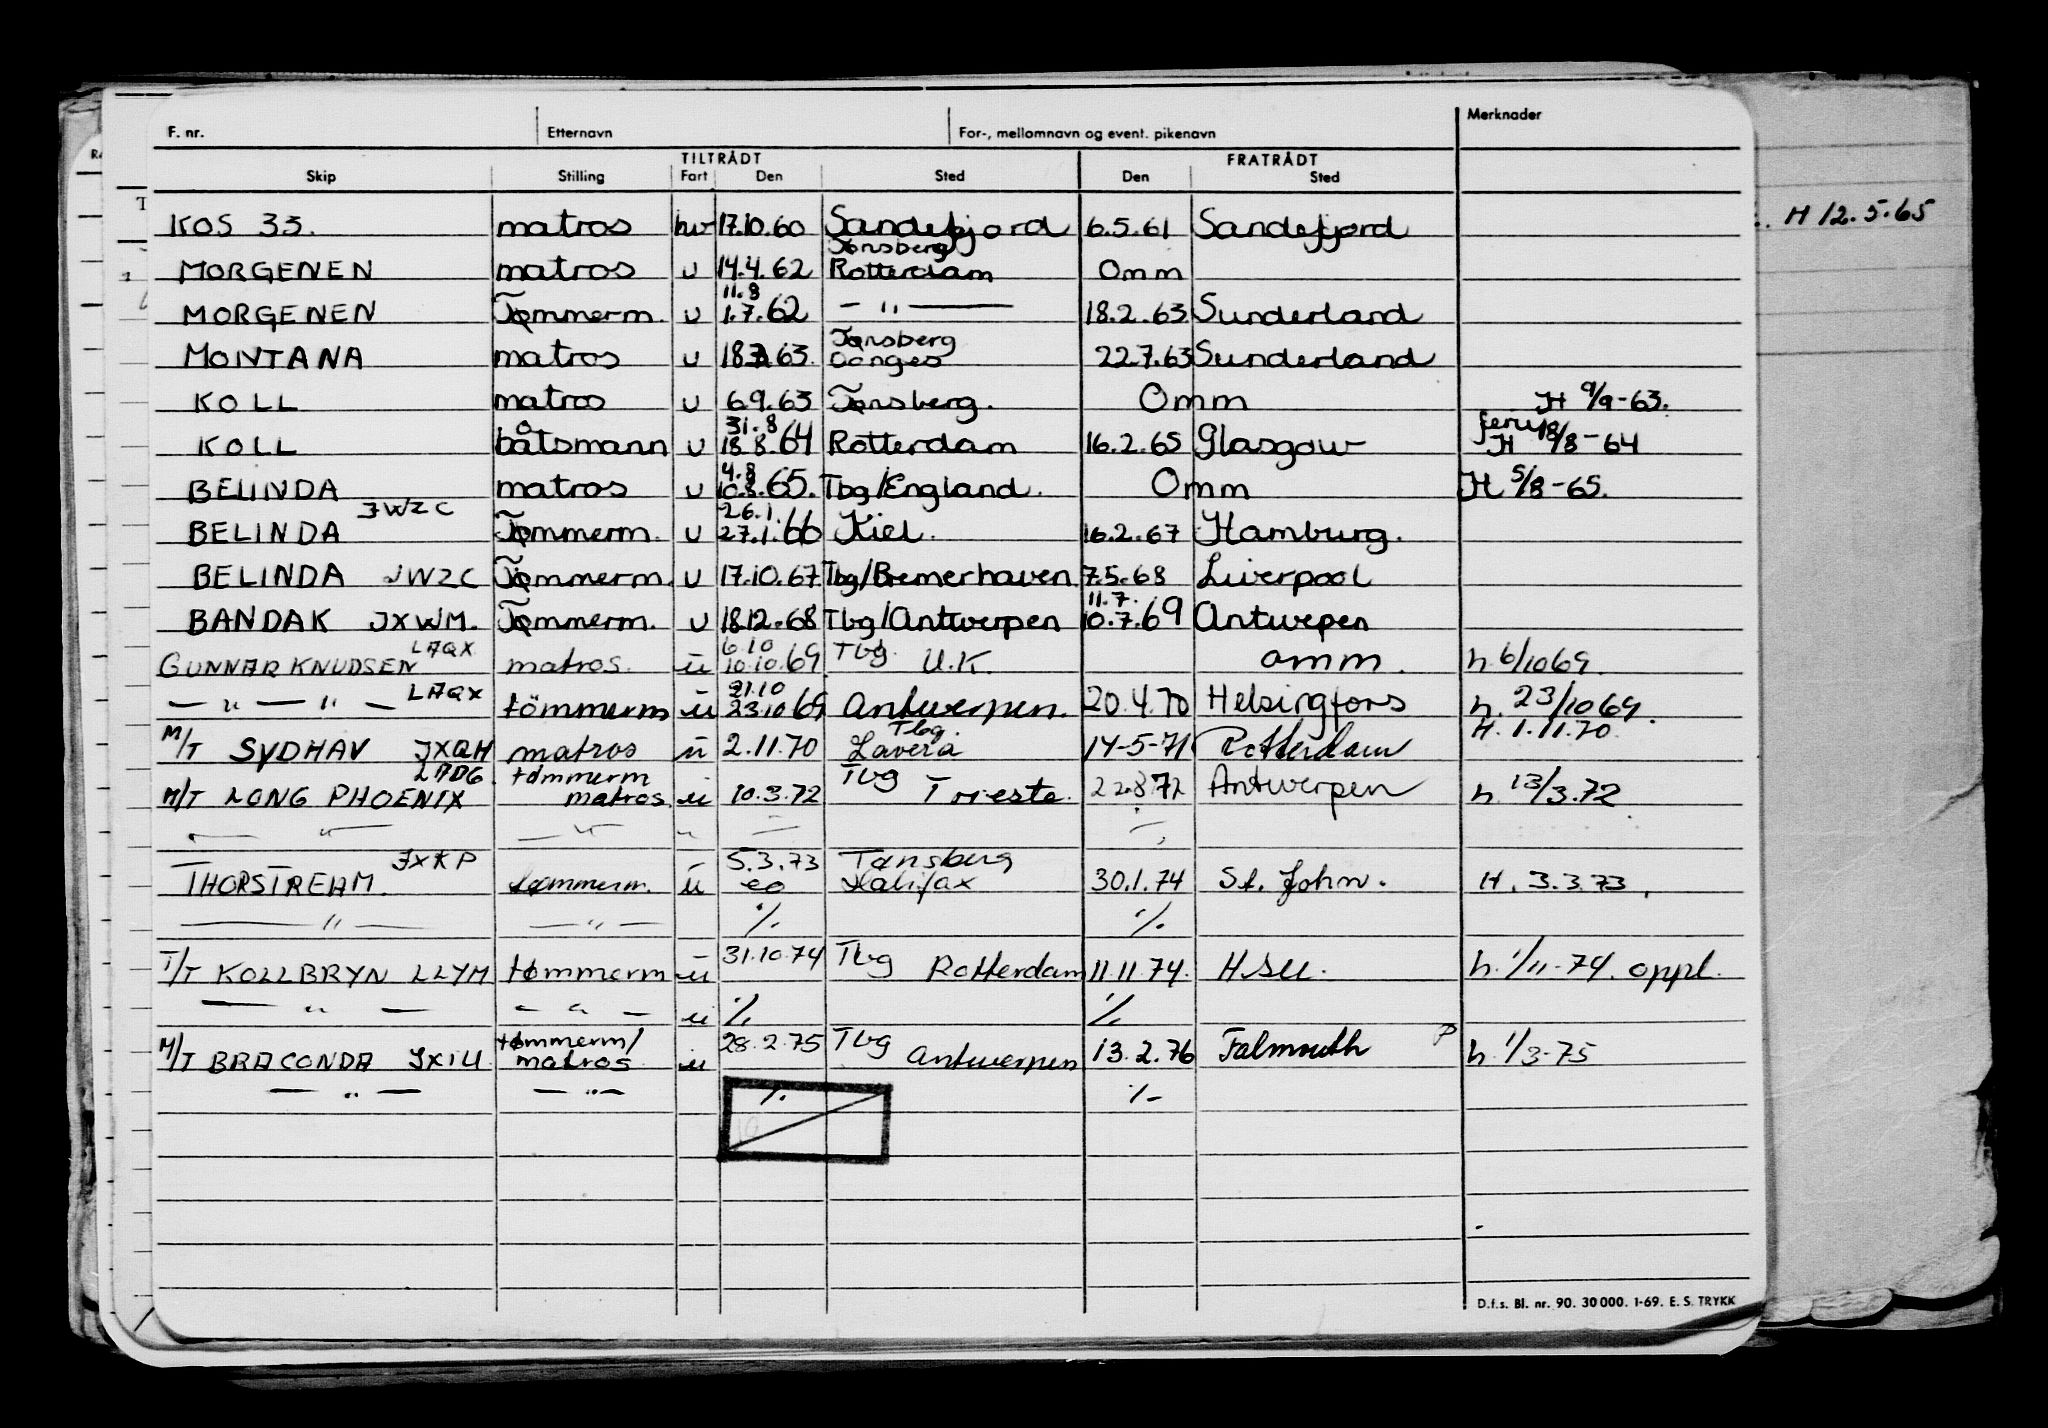 F. nr. Etternavn For-, mellomnavn og event. pikenavn Merknader
TILTRÅDT FRATRÅDT
Skip Stilling Fart Den Sted Den Sted
H 12.5.65
KOS 33. matros hv 17.10.60 Sandefjord 6.5.61 Sandefjord
Tønsberg
MORGENEN matros u 14.4.62 Rotterdam Omm
11.8
MORGENEN Tømmerm. u 1.7.62 — " — 18.2.63 Sunderland
Tønsberg
MONTANA matros u 63. Donges 22.7.63 Sunderland
KOLL matros u 6.9.63 Tønsberg. Omm H 9/9-63.
31.8
KOLL båtsmann u 18.8.64 Rotterdam 16.2.65 Glasgow H 18/8-64
4.8
BELINDA matros u 10.8.65. Tbg/England. Omm H 5/8-65.
JWZC 26.1.
BELINDA Tømmerm. u 27.1.66 Kiel. 16.2.67 Hamburg.
BELINDA JWZC Tømmerm. u 17.10.67 Tbg/Bremerhaven. 7.5.68 Liverpool
11.7.
BANDAK JXWM. Tømmerm. u 18.12.68 Tbg/Antwerpen 10.7.69 Antwepen
LAQX 6.10 Tbg.
GUNNAR KNUDSEN matros. u 10.10.69 U.K. omm. h. 6/10 69.
LAQX 21.10
— " — " — tömmerm u 23.10 69 Antwerpen. 20.4.70 Helsingfors h. 23/10 69.
Tbg. H. 1.11.70.
M/T SYDHAV JXQH matros u 2.11.70 Lavera 14-5-71 Rotterdam
LADG. tømmerm Tbg
M/T LONG PHOENIX matros. u 10.3.72 Trieste. 22.8.72 Antwerpen h. 13/3.72
— " — — " — " — " —
JXKP 5.3.73 Tønsberg
THORSTREAM. tømmerm. u eo Halifax 30.1.74 St. John. H. 3.3.73.
— " — — " — ./. ./.
T/T KOLLBRYN LLYM tømmerm u 31.10.74 Tbg Rotterdam 11.11.74. H. h. 1/11-74. oppl.
— " — — " — u ./. ./.
tømmerm/ 28.2.75 Tbg
M/T BRACONDA JXIU matros u Antwerpen 13.2.76 Falmouth P h. 1/3-75
— " — — " — ./. ./.
D.f.s. Bl. nr. 90. 30 000. 1-69. E. S. TRYKK